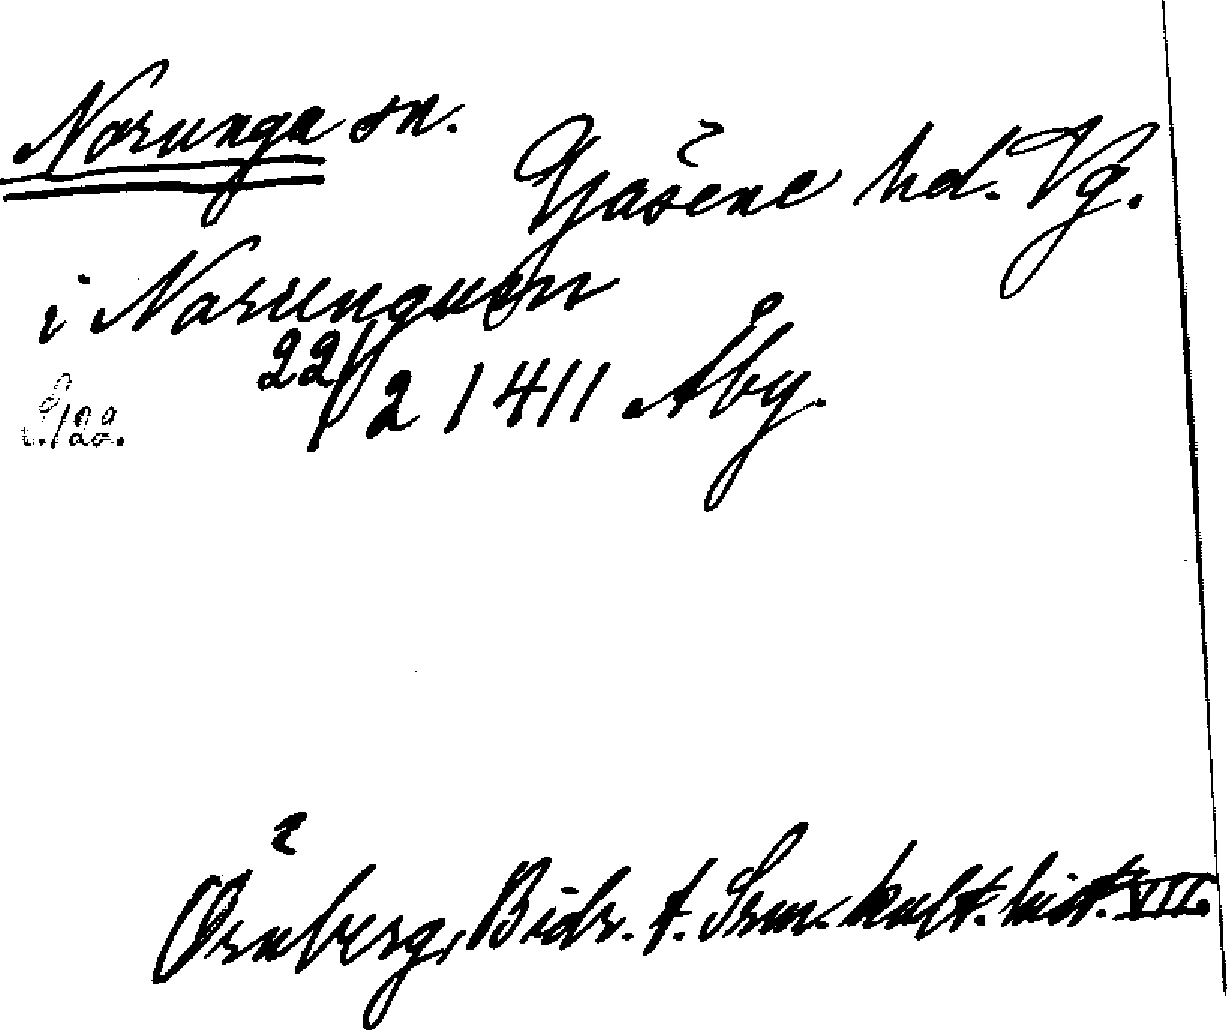 Norunga sn. Gäsene hd. Vg.
i Narungum
22/2 1411 Åby.
Örnberg, Bidr. t. Srm. kult. hist. VII.